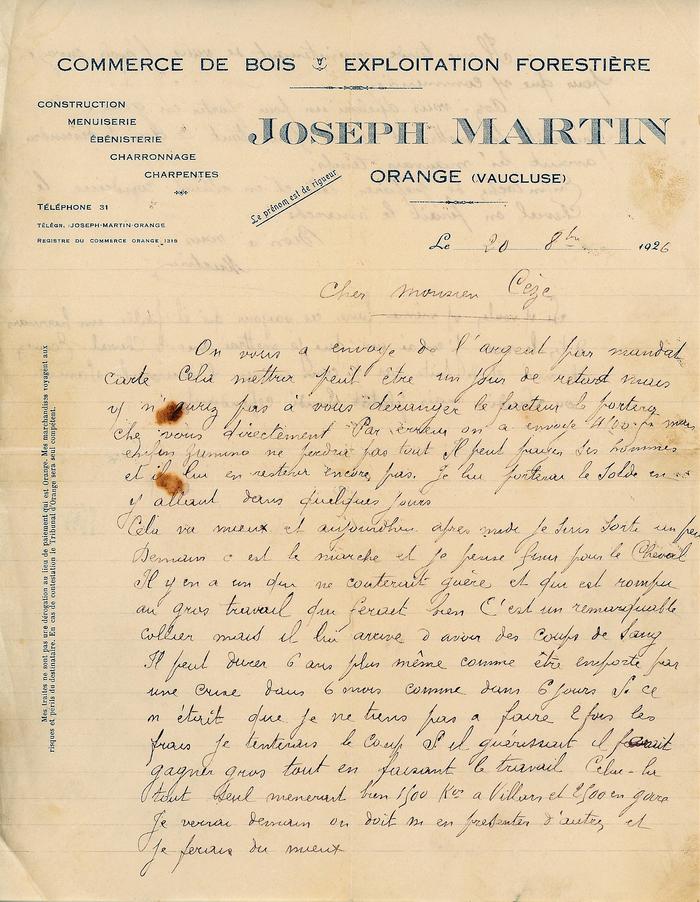 COMMERCE DE BOIS EXPLOITATION FORESTIÈRE
CONSTRUCTION
MENUISERIE
ÉBÉNISTERIE
CHARRONNAGE
CHARPENTES
JOSEPH MARTIN
ORANGE (VAUCLUSE)
Le prénom est de rigueur
TÉLÉPHONE 31
TÉLÉGR. JOSEPH-MARTIN-ORANGE
REGISTRE DU COMMERCE ORANGE 1318
Le 20 8bre 1926
Cher monsieur Cèze
On vous a envoyé de l'argent par mandat
carte Cela mettra peut être un jour de retard mais
vous déranger le facteur le portera
chez vous directement Par erreur on a envoyé
ne perdra pas tout Il peut payer ses hommes
et il lui en restera encore pas. Je lui porterai le solde en
y allant dans quelques jours
Cela va mieux et aujourdhui apres midi je suis sorti un peu
Demain c est le marché et je pense pour le Cheval
Il y en a un que ne couterait guère et qui est rompu
au gros travail qui ferait bien C'est un remarquable
collier mais il lui arrive d avoir des coups de sang
Il peut durer 6 ans plus même comme être emporté par
une crise dans 6 mois comme dans 6 jours Si ce
n était que je ne tiens pas a faire 2 fois les
frais je tenterais le coup S il guérissait il ferait
gagner gros tout en faisant le travail Celui-la
tout seul menerait bien 1500 Kos a Villars et 2500 en gare
Je verrai demain on doit m en presenter d'autres et
je ferais du mieux
Mes traites ne sont pas une dérogation au lieu de paiement qui est Orange. Mes marchandises voyagent aux
risques et périls du destinataire. En cas de contestation le Tribunal d'Orange sera seul compétent.